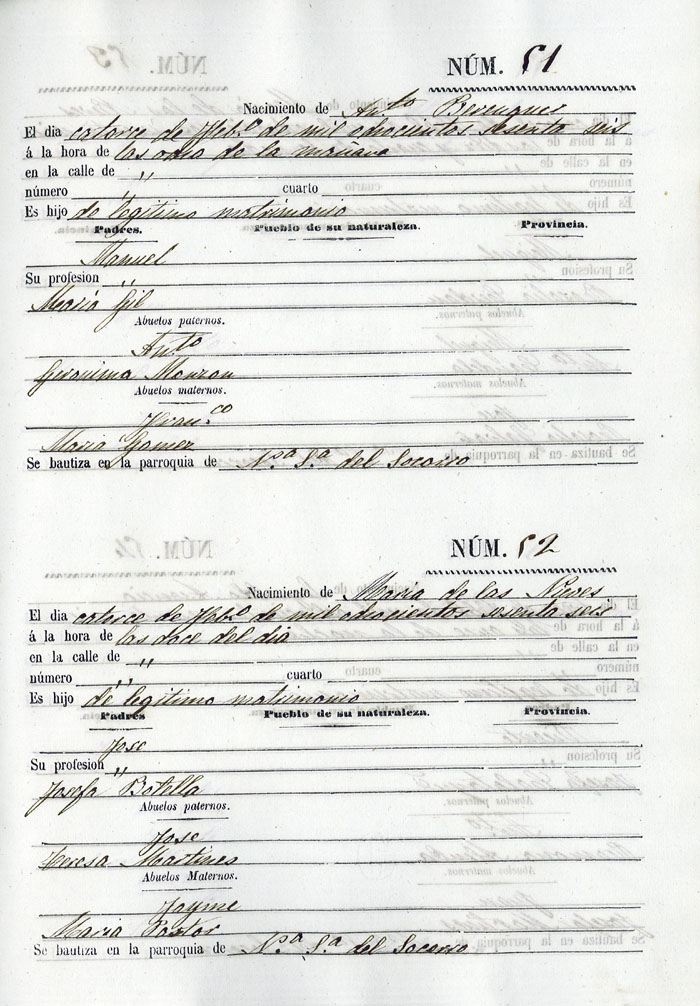 NÚM. 51
Nacimiento de Anto Berenguer
El dia catorce de Febo de mil ochocientos sesenta seis
á la hora de las ocho de la mañana
en la calle de "
número " cuarto
Es hijo de legitimo matrimonio
Padres. Pueblo de su naturaleza. Provincia.
Manuel
Su profesion "
Maria Gil
Abuelos paternos.
Anto
Geronima Monzon
Abuelos maternos.
Franco
Maria Gomez
Se bautiza en la parroquia de Na Sa del Socorro
NÚM. 52
Nacimiento de Maria de las Nieves
El dia catorce de Febo de mil ochocientos sesenta seis
á la hora de las doce del dia
en la calle de "
número " cuarto
Es hijo de legitimo matrimonio
Padres Pueblo de su naturaleza. Provincia.
Jose
Su profesion "
Josefa Botella
Abuelos paternos.
Jose
Teresa Martines
Abuelos Maternos.
Jayme
Maria Pastor
Se bautiza en la parroquia de Na Sa del Socorro